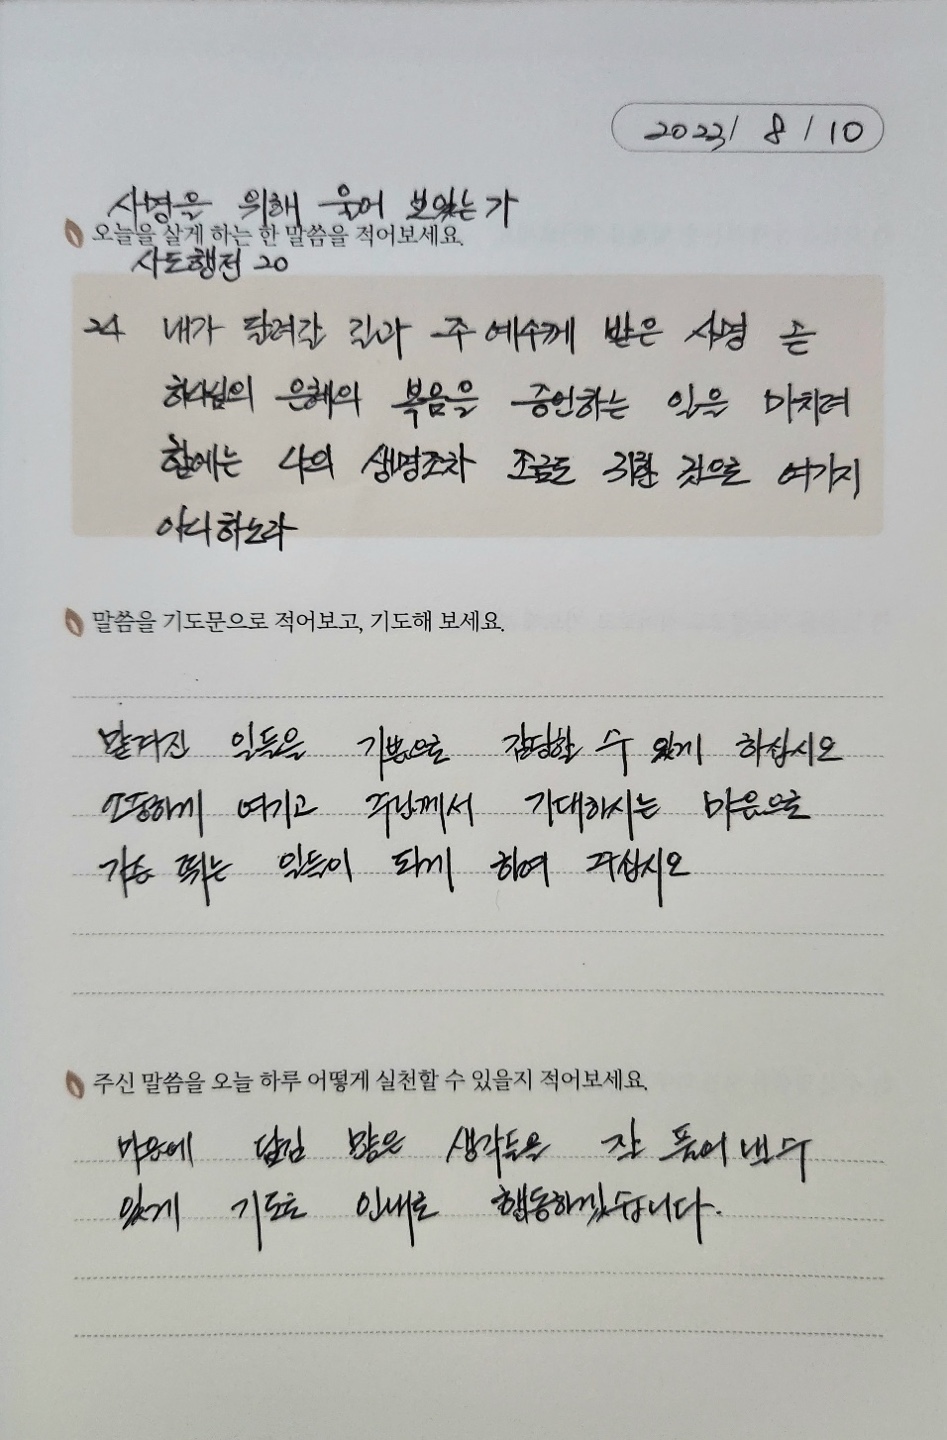 2023/ 8/10
사명을 위해 울어 보았는가
오늘을 살게 하는 한 말씀을 적어보세요.
사도행전 20
24 내가 달려갈 길과 주 예수께 받은 사명 곧
하나님의 은혜의 복음을 증언하는 일을 마치려
함에는 나의 생명조차 조금도 귀한 것으로 여기지
아니하노라
말씀을 기도문으로 적어보고, 기도해 보세요.
맡겨진 일들을 기쁨으로 감당할 수 있게 하십시오
소중하게 여기고 주님께서 기대하시는 마음으로
가슴 뛰는 일들이 되게 하여 주십시오
주신 말씀을 오늘 하루 어떻게 실천할 수 있을지 적어보세요.
마음에 담긴 많은 생각들을 잘 풀어 낼 수
있게 기도로 인내로 행동하겠습니다.